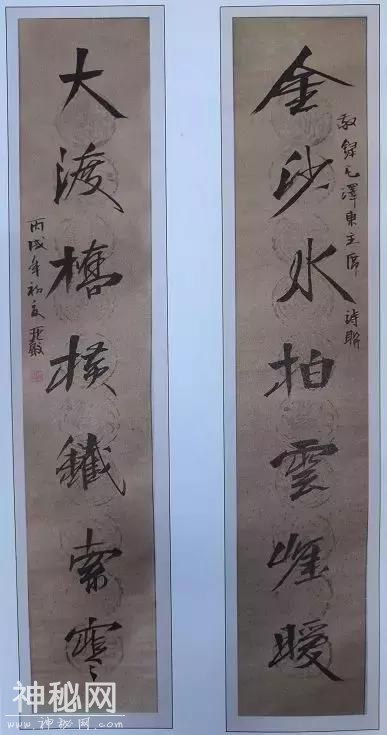 金沙水拍雲崕暖
敬錄毛澤東主席 詩聯
大渡橋横鐵索寒
丙戌年初夏
神秘网
www.神秘网.com